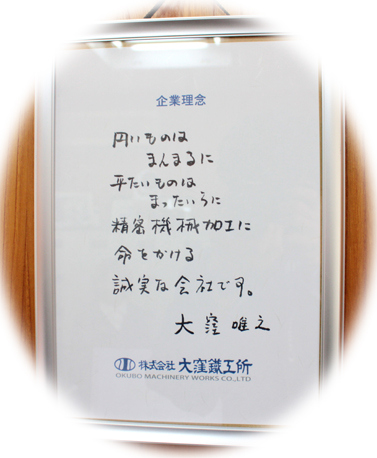 企業理念
円いものは
まんまるに
平たいものは
まったいらに
精密機械加工に
命をかける
誠実な会社です。
大窪唯之
株式会社大窪鐵工所
OKUBO MACHINERY WORKS CO.,LTD